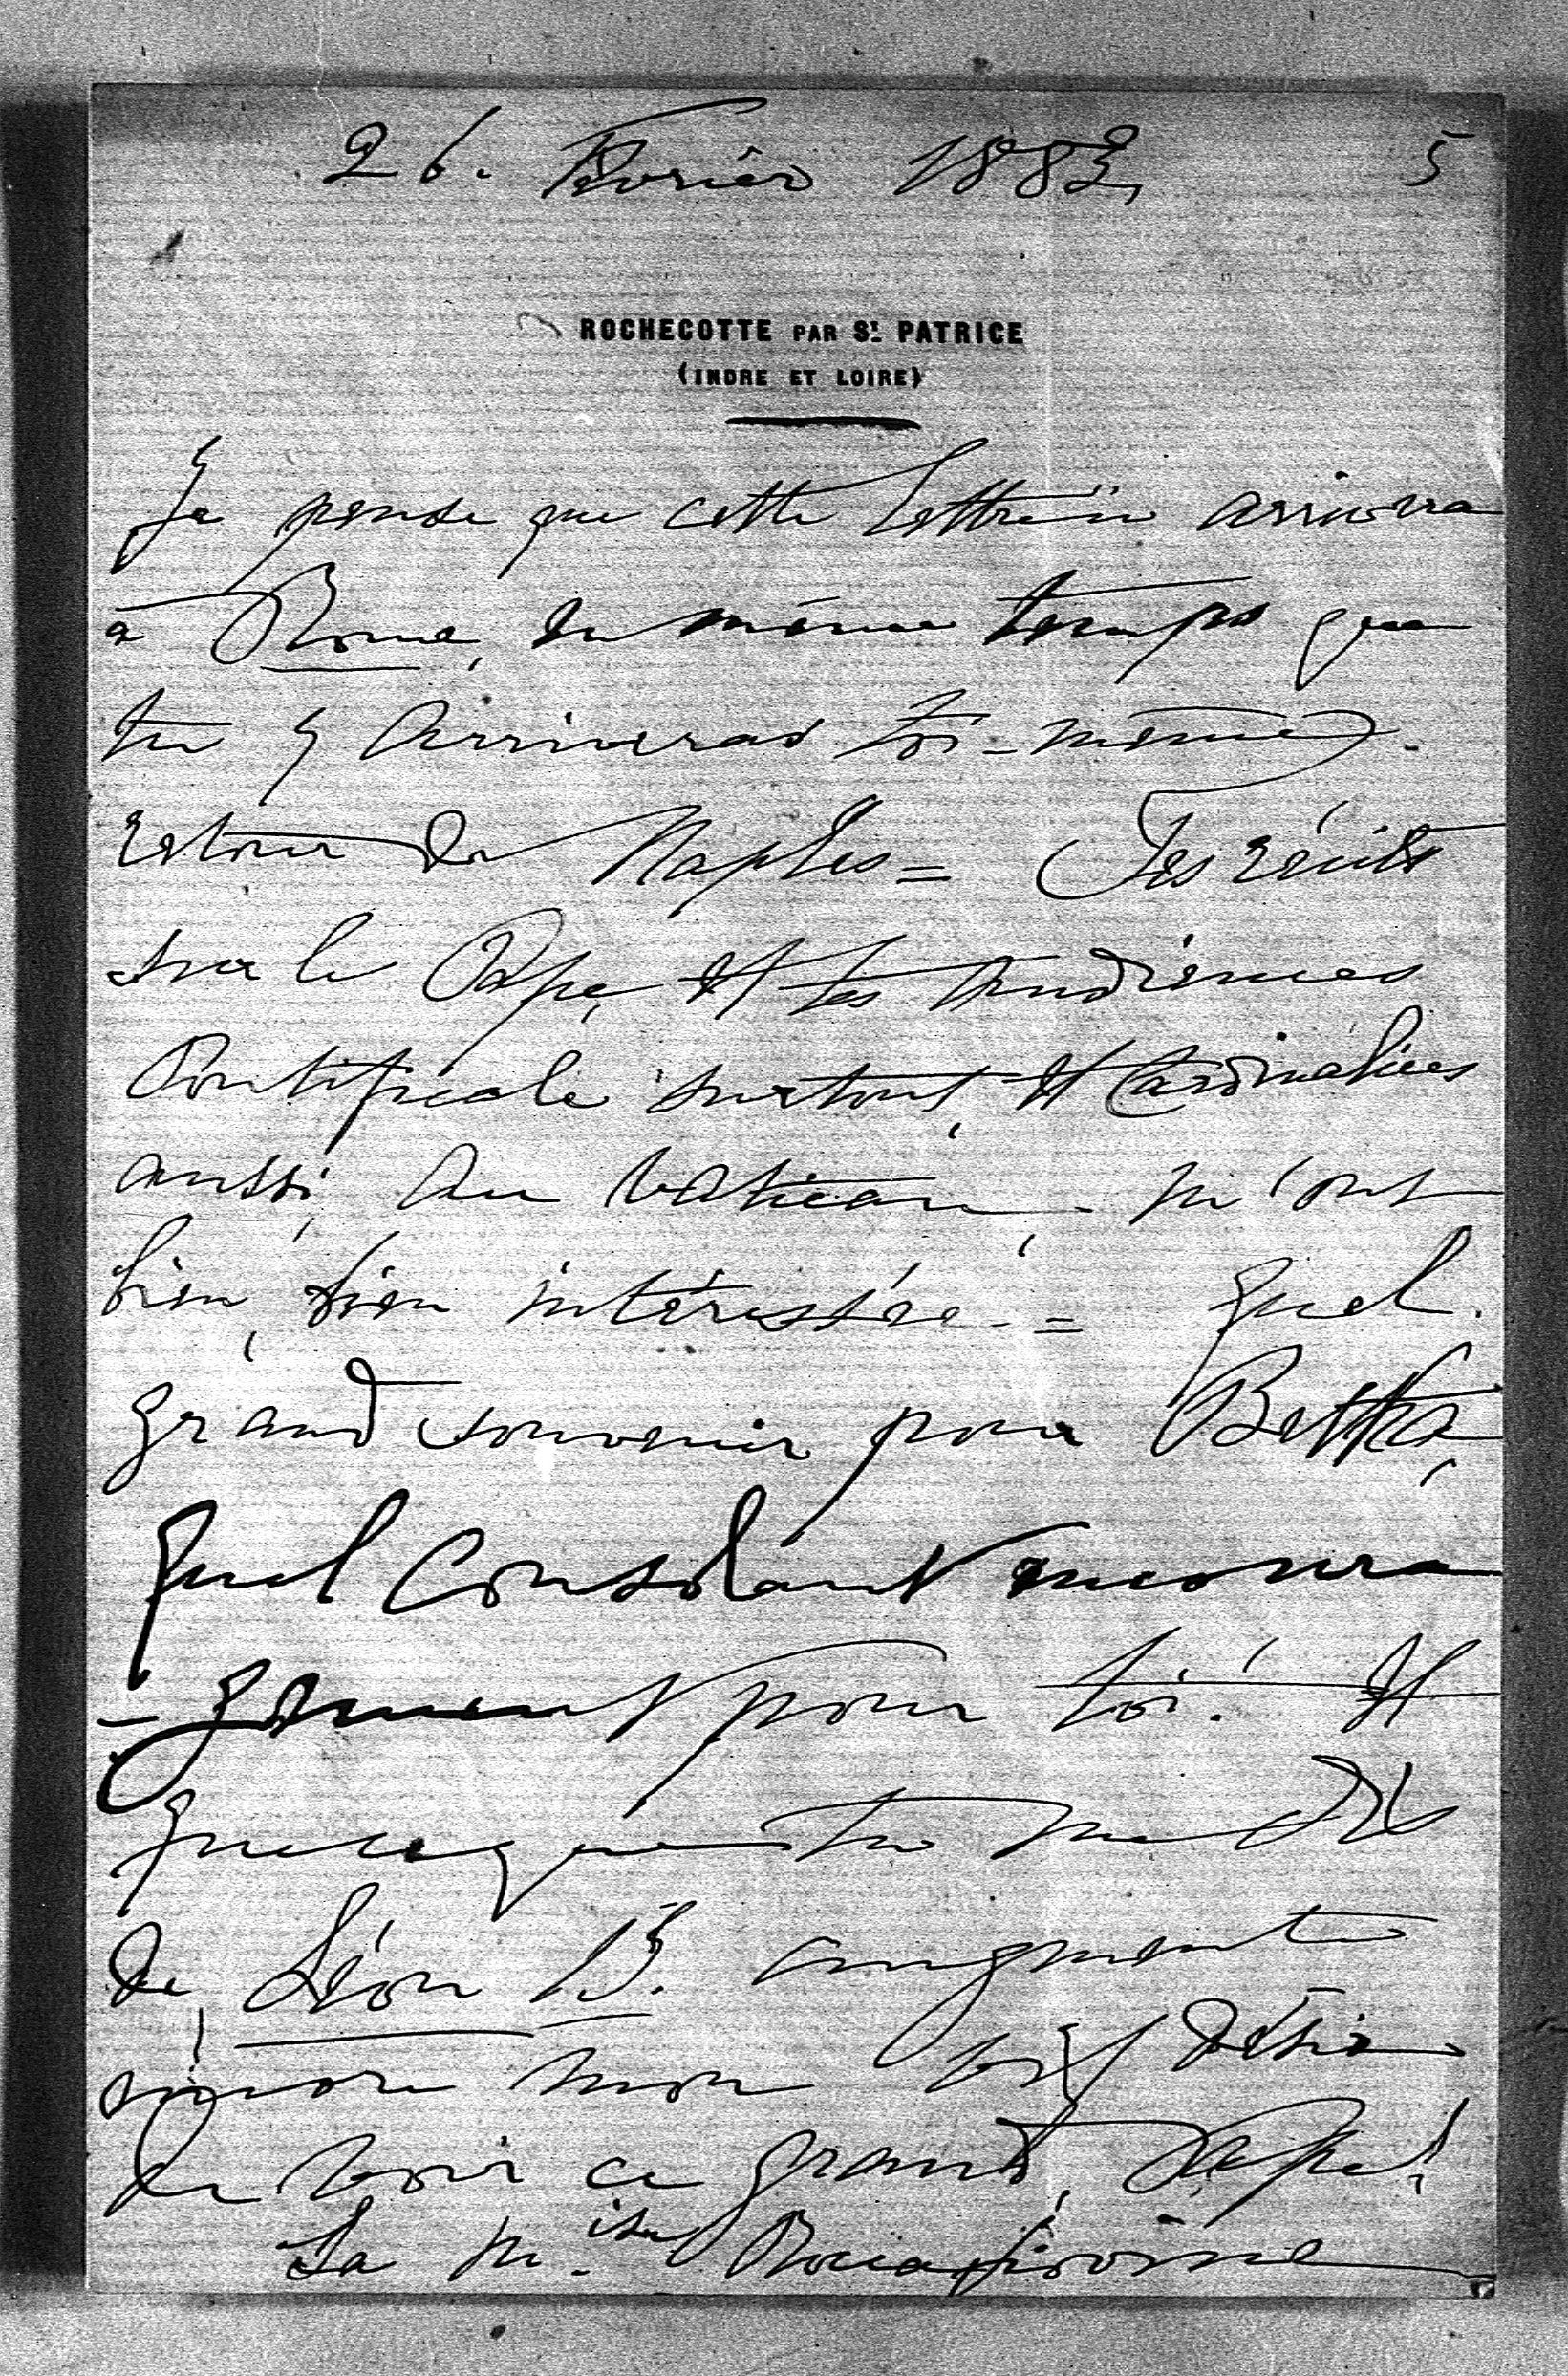 26. Février 1883, 5
ROCHECOTTE PAR St. PATRICE
(INDRE ET LOIRE)
Je pense que cette lettre-ci arrivera
à Rome, en même temps que
tu y arriveras toi-même.
retour de Naples = Tes récits
sur le Pape, et tes audiences
Pontificale surtout, et Cardinalices
aussi, au Vatican, m'ont
bien, bien intéressée. = Quel
grand souvenir pour Betka,
Quel Consolant encoura
-gement pour toi! Et
que ce que tu me dis
de, Léon 13. augmente
encore mon vif désir
de voir ce grand, Pape!
La M.ise